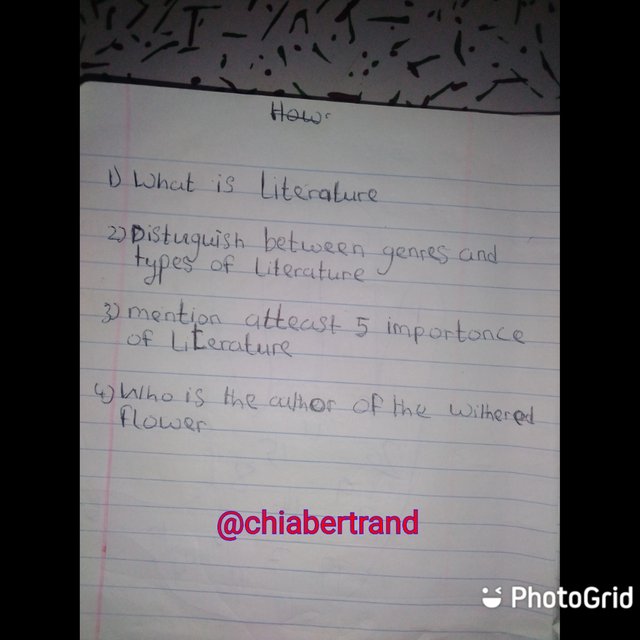 How:
1) What is Literature
2) Distuguish between genres and
types of Literature
3) mention atteast 5 importance
of Literature
4) Who is the author of the withered
flower
@chiabertrand
PhotoGrid